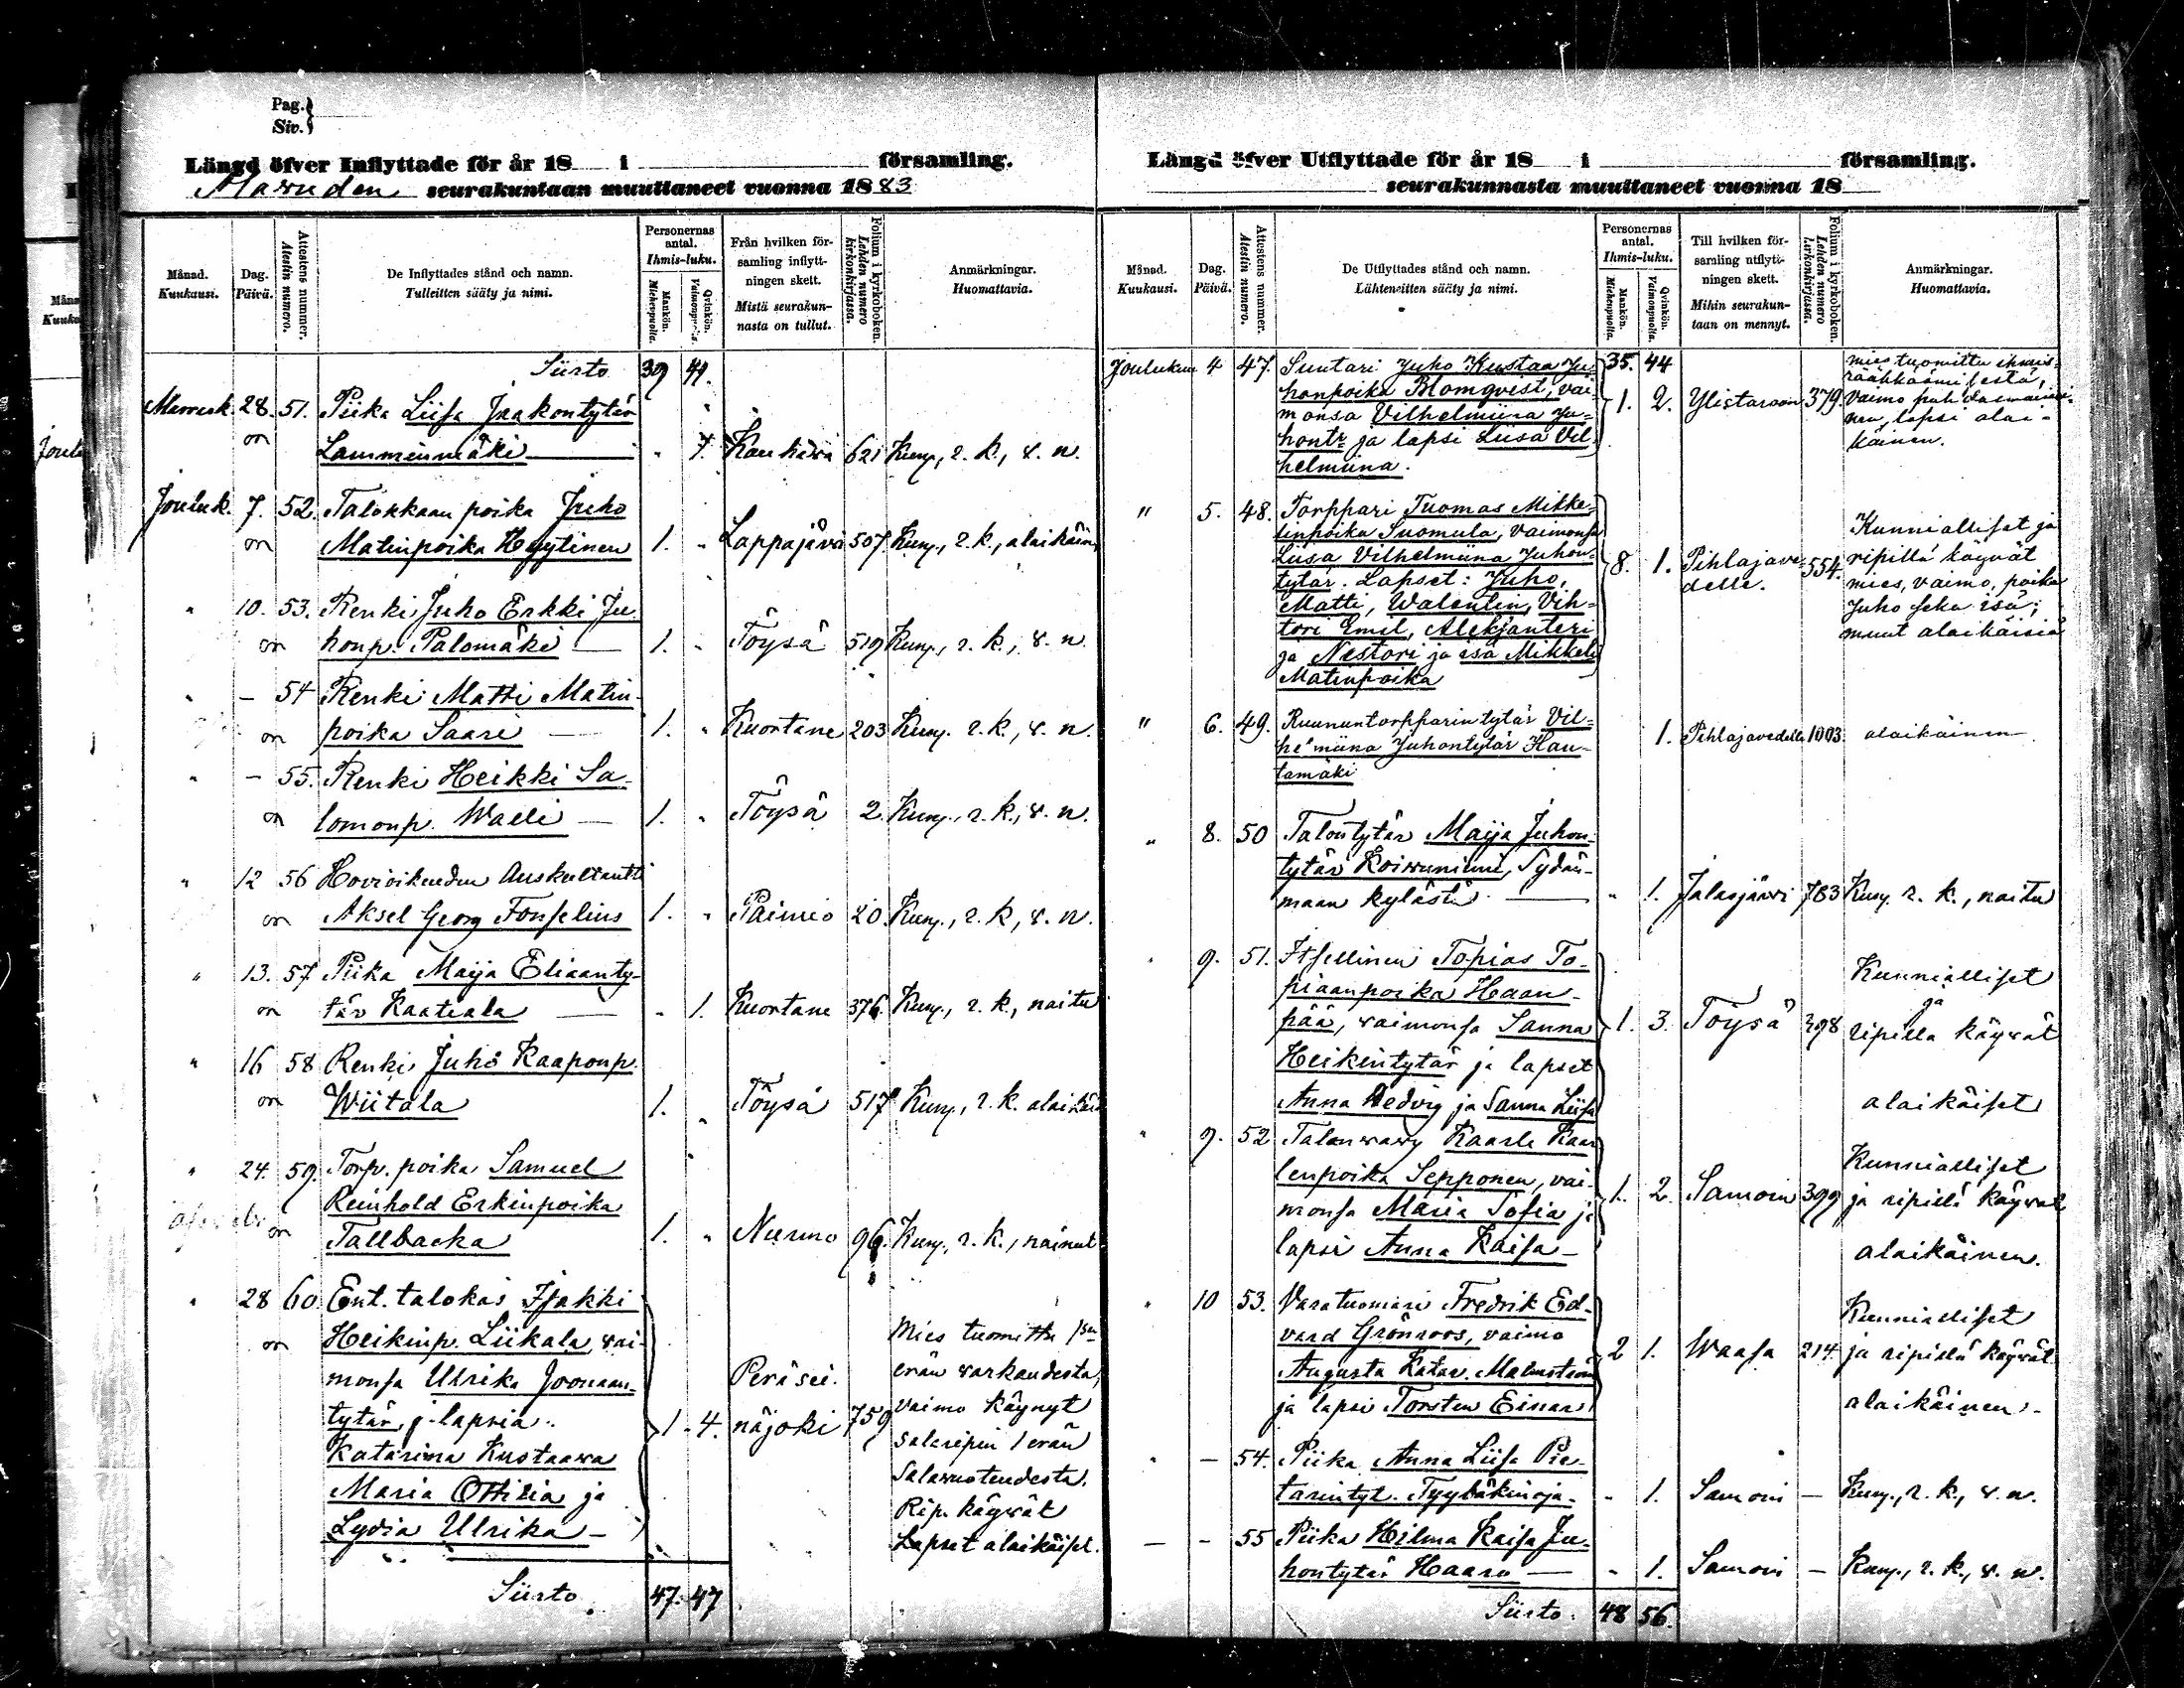 Pag.
Siv.
Längd öfver Inflyttade för år 18 i församling.
Alavuden seurakuntaan muuttaneet vuonna 1883
Månad.
Kuukausi.
Dag.
Päivä.
Attestens nummer.
Atestin numero.
De Inflyttades stånd och namn.
Tulleitten sääty ja nimi.
Personernas antal.
Ihmis-luku.
Mankön.
Miehenpuolta.
Qvinkön.
Från hvilken församling inflyttningen skett.
Mistä seurakunnasta on tullut.
Folium i kyrkoboken.
Lehden numero kirkonkirjassa.
Anmärkningar.
Huomattavia.
Siirto 39 41.
Marrask. 28. 51. Piika Liisa Jaakontytär
on Lamminmäki " 1. Kauhava 621 Kuny., r. k., v. n.
Jouluk. 7. 52. Talokkaan poika Juho
on Matinpoika Hyytinen 1. " Lappajävi 507 Kuny., r. k., alaikäin.
" 10. 53. Renki Juho Erkki Ju
on honp. Palomäki 1. " Töysä 519 Kuny., r. k., v. n.
" - 54 Renki Matti Matin-
on poika Saari 1. " Kuortane 203 Kuny. r. k., v. n.
" - 55. Renki Heikki Sa-
on lomonp. Walli 1. " Töysä 2. Kuny., r. k., v. n.
" 12 56 Hovioikeuden Auskultantti
on Aksel Georg Fonselius 1. " Paimio 20. Kuny., r. k., v. n.
" 13. 57 Piika Maija Eliaanty-
on tär Kaatiala " 1. Kuortane 376. Kuny., r. k., naitu
" 16 58 Renki Juho Kaaponp.
on Wiitala 1. " Töysä 517 Kuny., r. k. alaikäi
" 24. 59. Torp. poika Samuel
Reinhold Erkinpoika
on Tallbacka 1. " Nurmo 96. Kuny., r. k., nainut
" 28 60 Ent. talokas Isakki
on Heikinp. Liikala, vai-
monsa Ulrika Joonaan-
tytär, j. lapsia:
Katarina Kustaava
Maria Ottilia ja
Lydia Ulrika
1 - 4. Peräseinäjoki 759
Mies tuomittu 1sen
erän varkaudesta,
vaimo käynyt
salaripin 1 erän
Salavuoteudesta.
Rip. käyvät
Lapset alaikäiset.
Siirto 47. 47
Längd öfver Utflyttade för år 18 i församling.
seurakunnasta muuttaneet vuonna 18
Månad.
Kuukausi.
Dag.
Päivä.
Attestens nummer.
Atestin numero.
De Utflyttades stånd och namn.
Lähteneitten sääty ja nimi.
Personernas antal.
Ihmis-luku.
Mankön.
Miehenpuolta.
Qvinkön.
Vaimonpuolta.
Till hvilken församling utflyttningen skett.
Mihin seurakuntaan on mennyt.
Folium i kyrkoboken.
Lehden numero kirkonkirjassa.
Anmärkningar.
Huomattavia.
35. 44
Joulukuu 4 47. Suutari Juho Kustaa Ju-
honpoika Blomqvist, vai-
monsa Vilhelmiina Ju-
hontr ja lapsi Liisa Vil
helmiina.
1. 2. Ylistaroon 379
mies tuomittu ihmis-
rääkkäämisestä,
vaimo
nen, lapsi alai-
käinen.
" 5. 48. Torppari Tuomas Mikke-
linpoika Suomula, vaimonsa
Liisa Vilhelmiina Juhon-
tytär. Lapset: Juho,
Matti, Walentin, Vih-
tori Emil, Aleksanteri
ja Nestori ja isä Mikkeli
Matinpoika
8. 1. Pihlajavedelle. 554.
Kunnialliset ja
ripillä käyvät
mies, vaimo, poika
Juho seka isä;
muut alaikäisiä
" 6. 49. Ruununtorpparin tytär Vil-
helmiina Juhontytär Hau-
tamäki
1. Pihlajavedelle 1003. alaikäinen
" 8. 50 Talontytär Maija Juhon-
tytär Koivuniemi, Sydän-
maan kylästä " 1. Jalasjärvi 783 Kuny. r. k., naitu
" 9. 51. Itsellinen Topias To-
piaanpoika Haan-
pää, vaimonsa Sanna
Heikintytär ja lapset
Anna Hedvig ja Sanna Liisa
1. 3. Töysä 398
Kunnialliset
ja
ripillä käyvät
alaikäiset
" 9. 52 Talonvävy Kaarle Kaar
lenpoika Sepponen, vai-
monsa Maria Sofia ja
lapsi Anna Kaisa
1. 2. Samoin 399
Kunnialliset
ja ripillä käyvät
alaikäinen.
" 10 53. Varatuomari Fredrik Ed-
vard Grönroos, vaimo
Augusta Katar. Malmström
ja lapsi Torsten Einar
2 1. Waasa 214.
Kunnialliset
ja ripillä käyvät
alaikäinen.
" - 54. Piika Anna Liisa Pie-
tarintyt. " 1. Samoin - Kuny., r. k., v. n.
- - 55 Piika Hilma Kaisa Ju-
hontytär Haaro " 1. Samoin - Kuny., r. k., v. n.
Siirto. 48 56.